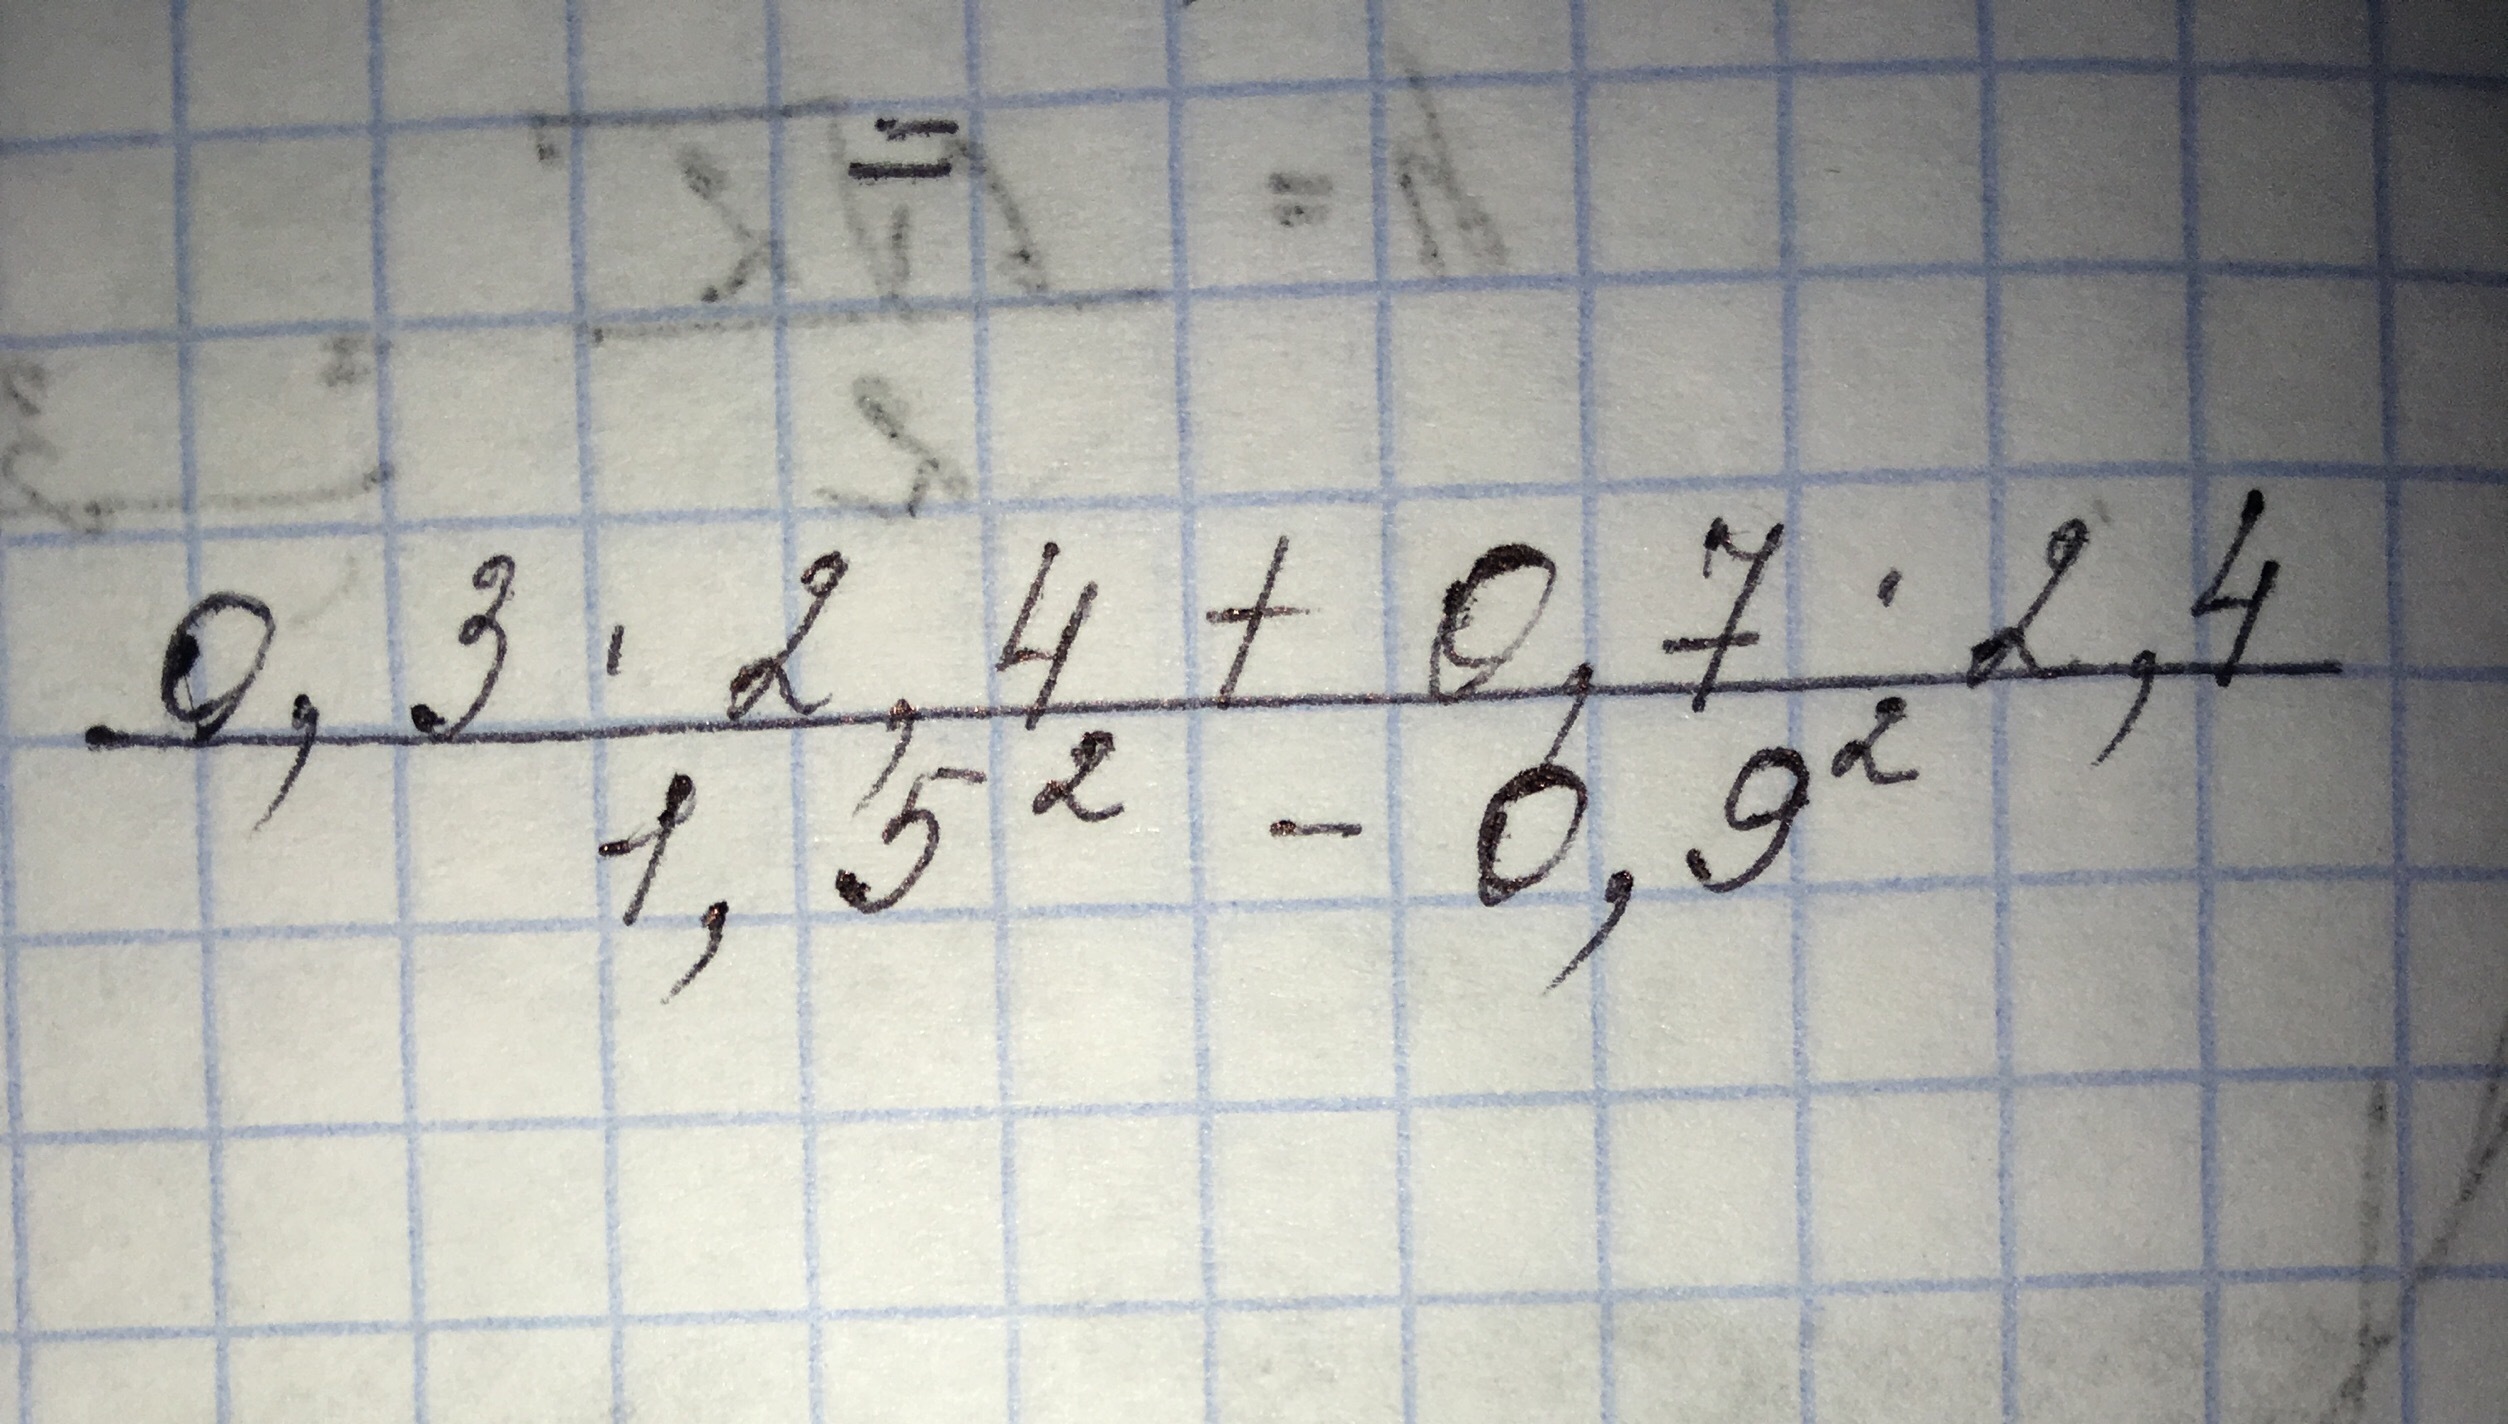 =
0,3 · 2,4 + 0,7 · 2,4
1,5² - 0,9²